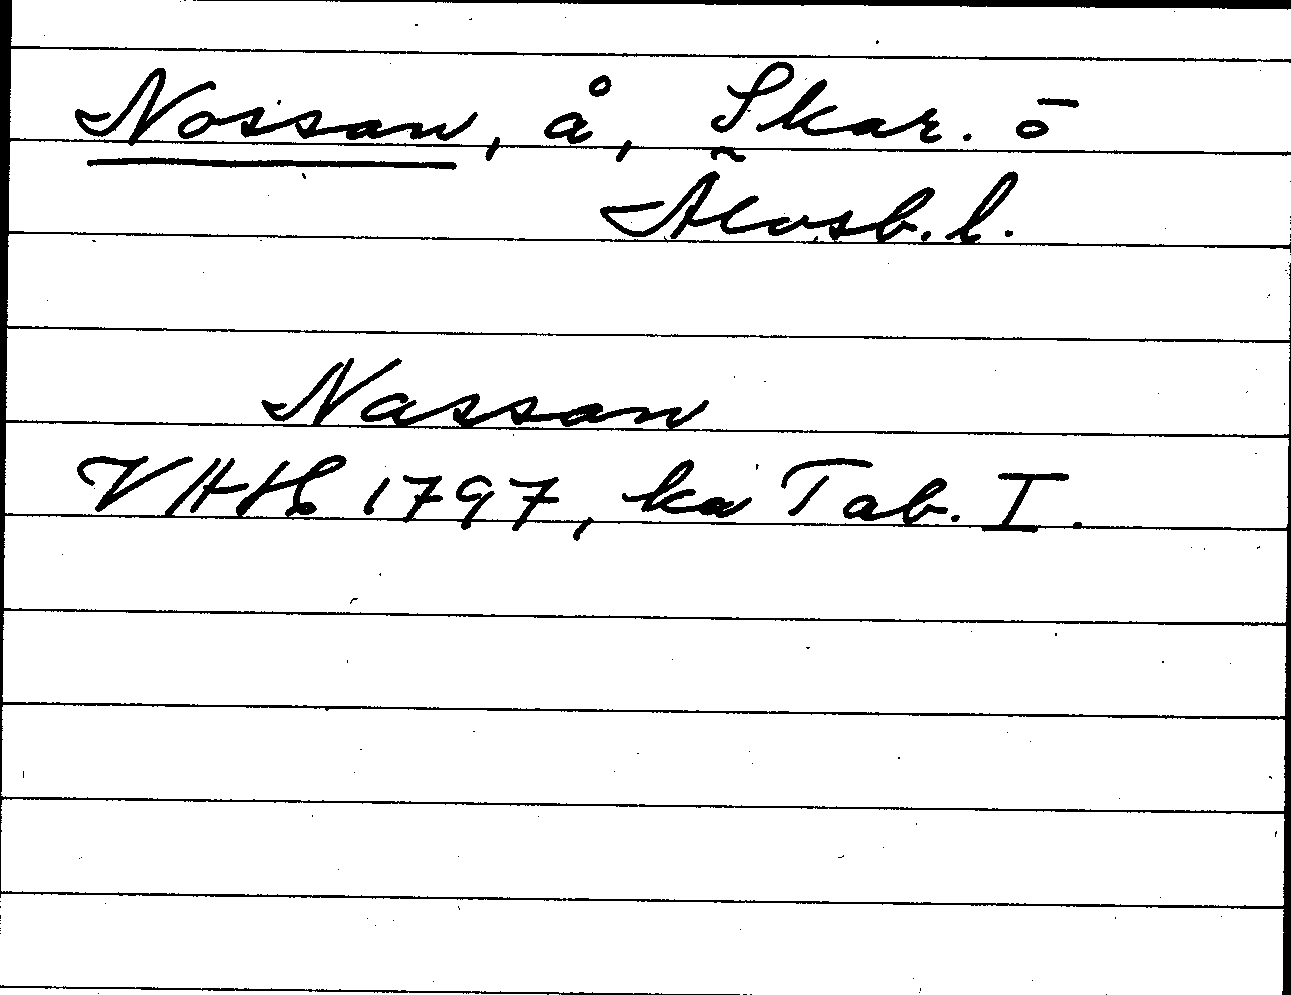 Nossan, å, Skar. ö
Älvsb. l.
Nassan
VHH 1797, ka Tab. I.